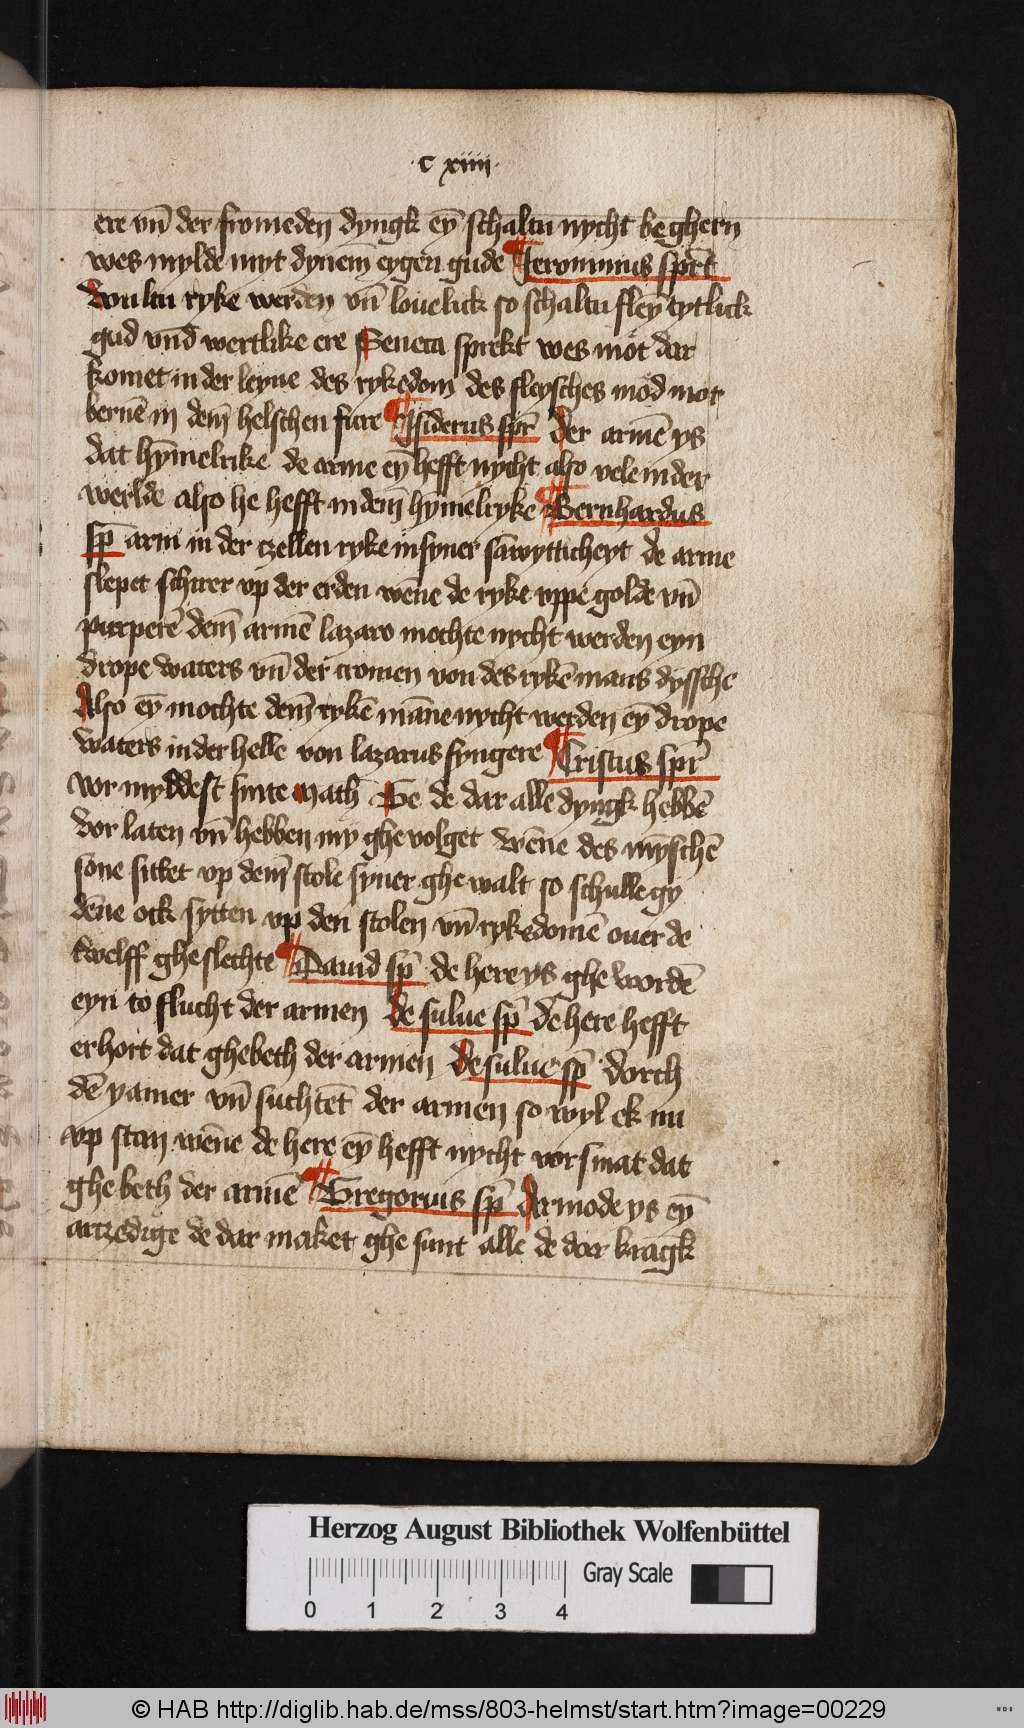 ·c xiiii·
ere vn̄ der fromeden dyngk ey̅ schaltu nycht beghern
wes mylde myt dynem̄ eygen gude ¶ Jeronimus sprct
wultu ryke werden vn̄ louelick so schaltu fley̅ tytlick
gud vnd̄ wertlike ere Seneca sprekt wes mot dar
komet in der leyne des rykedom des fleysches mod mot
bernē in dem̄ helschen fure ¶ Isiderus spr̄ der armē ys
dat hȳmelrike de arme ey̅ hefft nycht also vele in der
werlde also he hefft in dem hȳmelryke ¶ Bernhardus
sp̄ arm in der czellen ryke in syner sāwytticheyt de arme
slepet schirer vp der erden wēne de ryke vppe golde vn̄
purperē dem̄ armē lazaro mochte nycht werden eyn
drope waters vn̄ der cromen von des rykē mans dyssche
Also ey̅ mochte dem̄ rykē māne nycht werden ey̅ drope
waters in der helle von lazarus fyngere ¶ Cristus spr̄
vor myddest sinte math̄ Se de dar alle dyngk hebbē
vor laten vn̄ hebben my ghe volget wēne des mȳschē
sone sittet vp dem̄ stole syner ghe walt so schulle gy
dēne ock sytten vp den stolen vn̄ rykedomē ouer de
twelff ghe slechte ¶ Dauid sp̄ de here ys ghe wordē
eyn to flucht der armen de sulue sp̄ de here hefft
erhort dat ghebeth der armen de sulue sp̄ dorch
dē yamer vn̄ suchtēt der armen so wyl ek nu
vp stan wēne de here ey̅ hefft nycht vor smat dat
ghe beth der armē ¶ Gregorius sp̄ Armode ys ey̅
artzedige de dar maket ghe sunt alle de dar krāgk
Herzog August Bibliothek Wolfenbüttel
Gray Scale
0 1 2 3 4
© HAB http://diglib.hab.de/mss/803-helmst/start.htm?image=00229